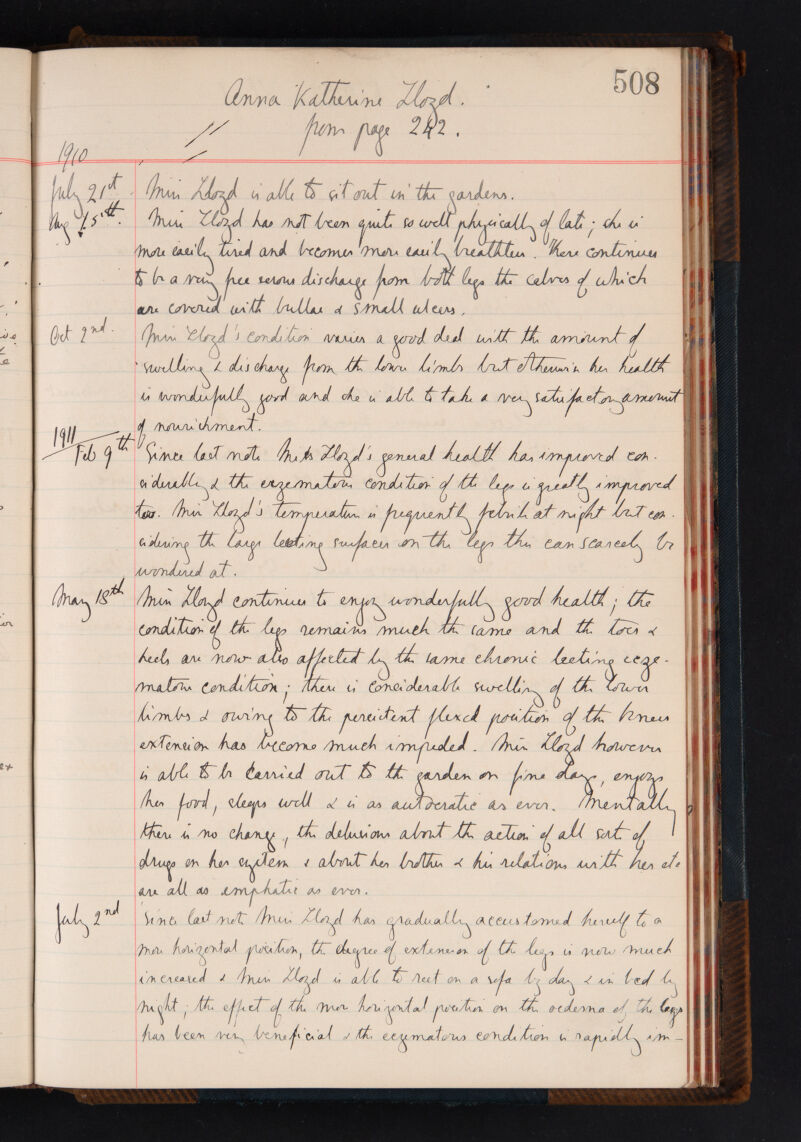 508
Anna Katherine Lloyd.
from page 242.
1910
July 21st. Miss Lloyd is able to sit out in the gardens.
Aug 15th. Miss Lloyd has not been quite so well physically of late; she is
more easily tired and becomes more easily breathless. There continues
to be a very free serous discharge from both legs the calves of which
are covered with bullae & small ulcers.
Oct 2nd. Miss Lloyd's condition varies a good deal with the amount of
swelling & discharge from the lower limbs but otherwise her health
is wonderfully good and she is able to take a very satisfactory amount
of nourishment.
1911
Feb 9th Since last note Miss Lloyd's general health has improved con-
siderably & the eczematous condition of the legs is greatly improved
too. Miss Lloyd's temperature is frequently febrile at night but con-
sidering the large surfaces on the legs this can scarcely be
wondered at.
May 18th Miss Lloyd continues to enjoy wonderfully good health; the
condition of the legs remains much the same and the toes &
heels are now also affected by the same chronic ecze-
matous condition; there is considerable swelling of the lower
limbs & owing to the persistent flexed position of the knees
extension has become much impeded. Miss Lloyd however
is able to be carried out to the garden on fine days, enjoys
her food, sleeps well & is as autocratic as ever. Mentally
there is no change, the delusions about the action of all sort of
drugs on her system & about her brother & his relations with her etc
are all as emphatic as ever.
July 2nd Since last note Miss Lloyd has gradually accustomed herself to a
more horizontal position, the degree of extension of the legs is now much
increased & Miss Lloyd is able to rest on a sofa by day & in bed by
night; the effect of the more horizontal position on the oedema of the legs
has been very beneficial & the eczematous condition is rapidly im-